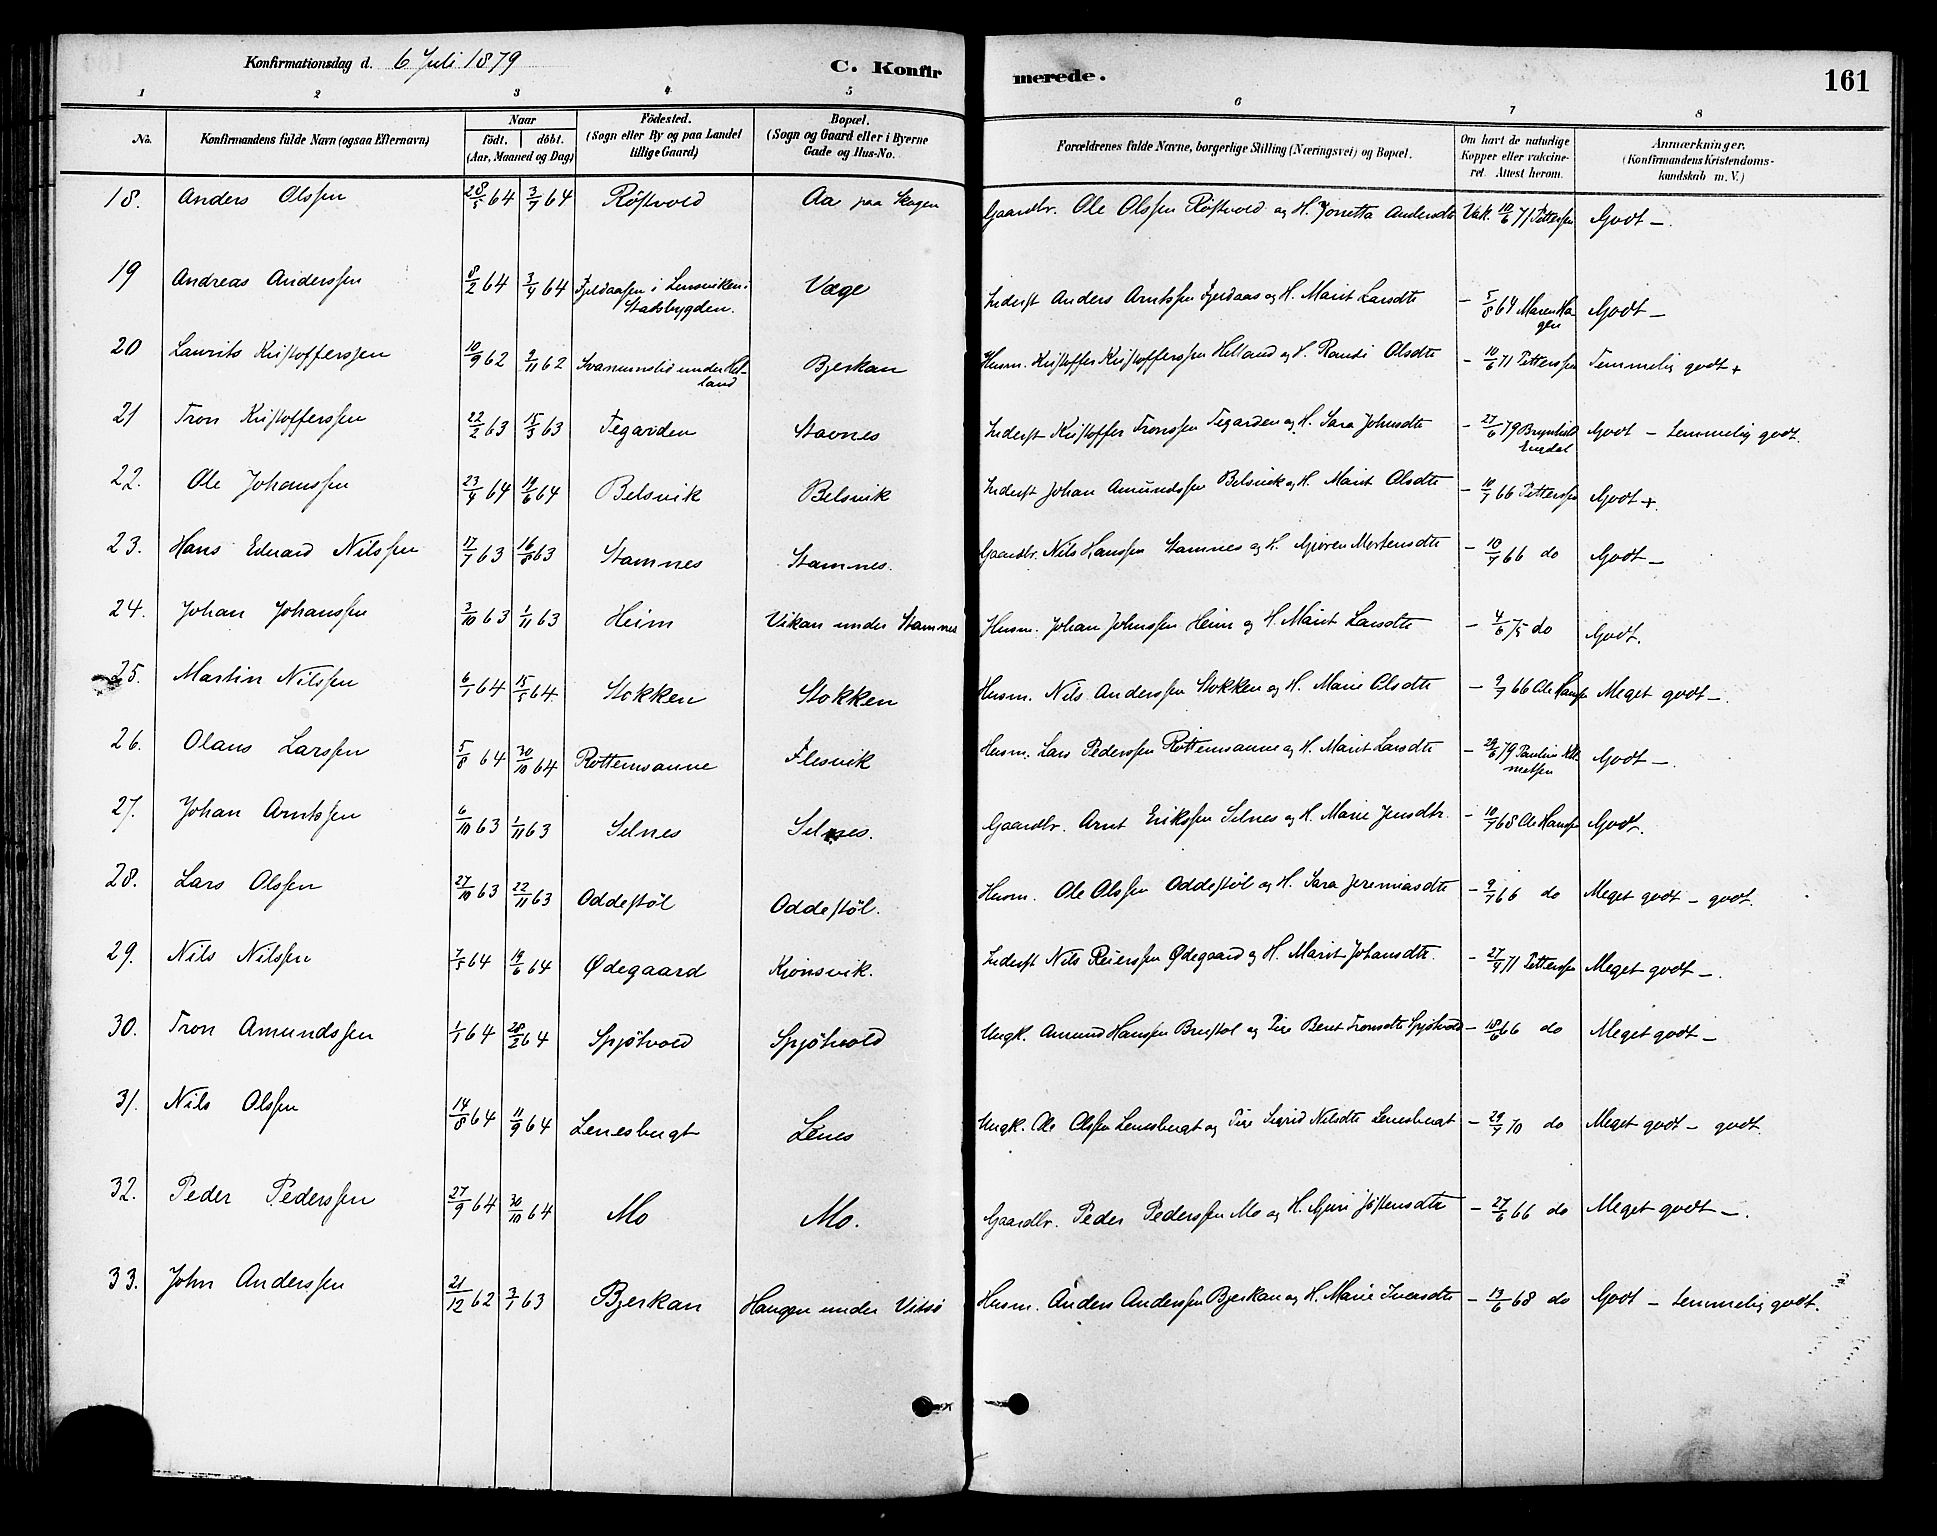 Konfirmationsdag d. 6 Juli 1879 C. Konfirmerede. 161
1 2 3 4 5 6 7 8
No. Konfirmandens fulde Navn (ogsaa Efternavn) Naar födt. döbt. (Aar, Maaned og Dag) Födested. (Sogn eller By og paa Landet tillige Gaard) Bopæl. (Sogn og Gaard eller i Byerne Gade og Hus-No. Forældrenes fulde Navne, borgerlige Stilling (Næringsvei) og Bopæl. Om havt de naturlige Kopper eller vakcineret. Attest herom. Anmærkninger. (Konfirmandens Kristendomskundskab m. V.)
18. Anders Olssen 28/5 64 3/7 64 Röstvold Aa paa Skagen Gaardbr. Ole Olssen Röstvold og H. Jonetta Andersdt Vak. 10/6 71 Pettersen Godt –
19 Andreas Anderssen 8/2 64 3/4 64 Fjeldaasen i Lensviken i Stadsbygden. Vage Inderst Anders Arntssen Fjeldaas og H. Marit Larsdtr – 5/8 64 Maren Hagen Godt –
20 Laurits Kristofferssen 10/9 62 2/11 62 Svanumslid under Helland Bjerkan Husm. Kristoffer Kristofferssen Helland og H. Randi Olsdtr – 10/6 71 Petterssen Temmelig godt +
21 Tron Kristofferssen 22/2 63 15/3 63 Tegarden Stavnes Inderst Kristoffer Tronssen Tegarden og H. Sara Johnsdtr – 27/6 79 Brynhild Engdal Godt – temmelig godt.
22. Ole Johanssen 23/4 64 19/6 64 Belsvik Belsvik Inderst Johan Amundssen Belsvik og H. Marit Olsdtr – 10/7 66 Petterssen Godt +
23. Hans Edvard Nilssen 17/7 63 16/8 63 Stamnes Stamnes. Gaardbr. Nils Hanssen Stamnes og H. Gjören Mortensdtr – 10/7 66 do Godt –
24. Johan Johanssen 3/10 63 1/11 63 Heim Vikan under Stamnes Husm. Johan Johnssen Heim og H. Marit Larsdtr – 4/6 75 do Godt.
25. Martin Nilssen 6/1 64 15/5 64 Stokken Stokken Husm. Nils Anderssen Stokken og H. Marie Olsdtr – 9/7 66 Ole Hanssen Meget godt –
26. Olaus Larssen 5/8 64 30/10 64 Rottemsanne Flesvik Husm. Lars Pederssen Rottemsanne og H. Marit Larsdtr – 29/6 79 Pauline Godt –
27. Johan Arntssen 6/10 63 1/11 63 Selnes Selnes. Gaardbr. Arnt Erikssen Selnes og H. Marie Jensdtr. – 10/7 68 Ole Hanssen Godt.
28. Lars Olssen 27/10 63 22/11 63 Oddestöl Oddestöl. Husm. Ole Olssen Oddestöl og H. Sara Jeremiasdtr – 9/7 66 do Meget godt – godt.
29. Nils Nilssen 7/5 64 19/6 64 Ødegaard Kjönsvik. Inderst Nils Reierssen Ødegaard og H. Marit Johansdtr. – 27/9 71 Petterssen Meget godt –
30. Tron Amundssen 1/1 64 28/2 64 Spjötvold Spjötvold Ungk. Amund Hanssen og Pige Beret Tronsdtr Spjötvold – 18/6 66 do Meget godt –
31. Nils Olssen 14/8 64 11/9 64 Lenesbugt Lenes Ungk. Ole Olssen Lenesbugt og Pige Sigrid Nilsdtr Lenesbugt – 29/9 70 do Meget godt – godt.
32. Peder Pederssen 27/9 64 30/10 64 Mo Mo. Gaardbr. Peder Pederssen Mo og H. Guri Jöstensdtr – 27/6 66 do Meget godt –.
33. John Anderssen 21/12 62 3/1 63 Bjerkan Haugen under Vitsö Husm. Anders Anderssen Bjerkan og H. Marie Iversdtr – 13/6 68 do Godt – temmelig godt.